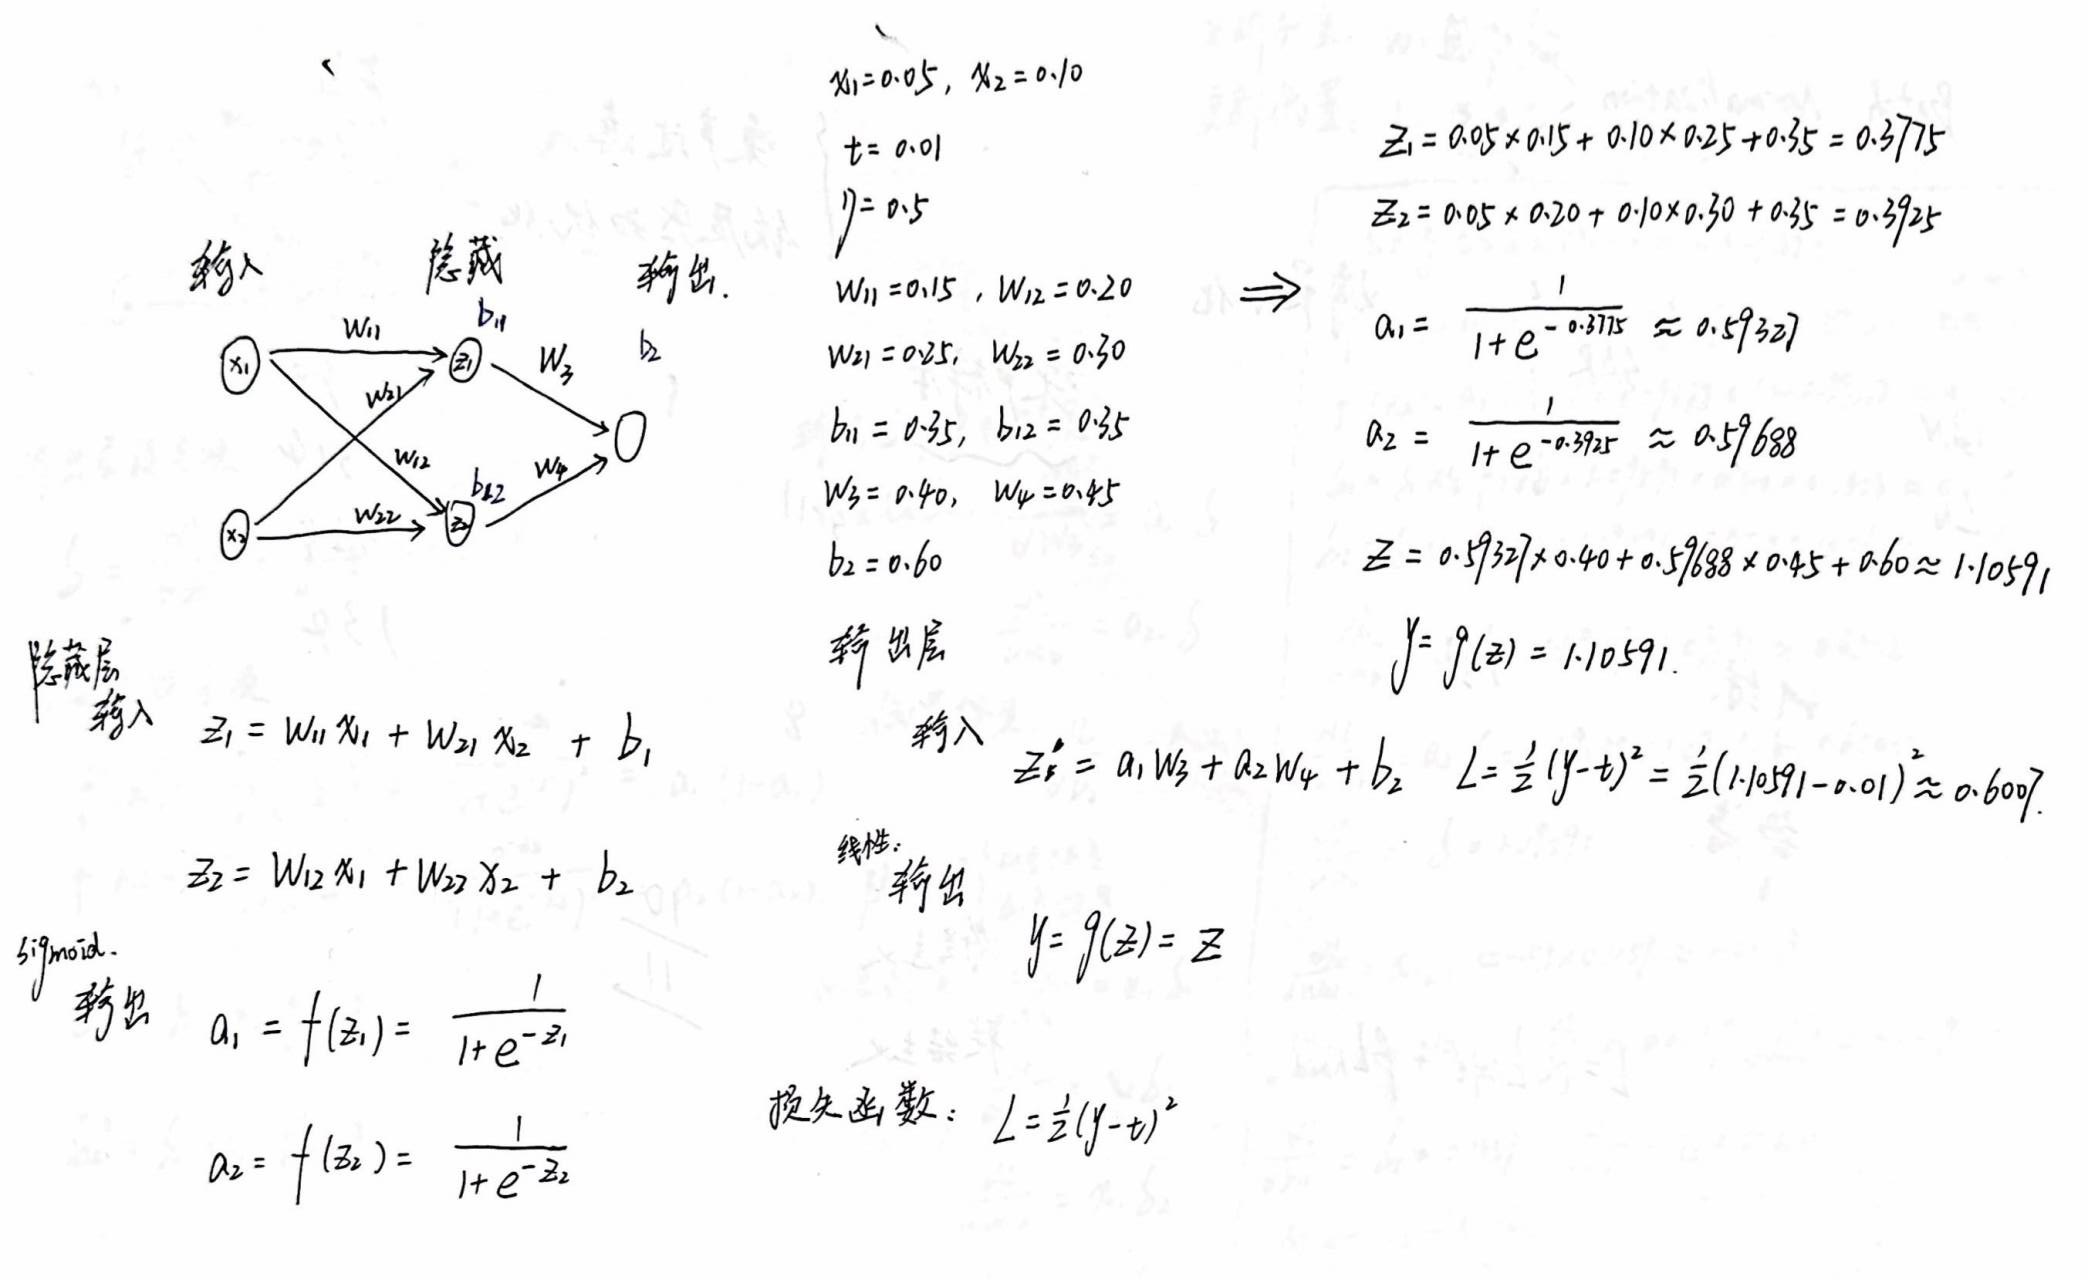 输入 隐藏 输出.
b₁₁
x₁ w₁₁ z₁ w₃ b₂
w₂₁
w₁₂ w₄
b₁₂
x₂ w₂₂ z₂
隐藏层
输入 z₁ = w₁₁x₁ + w₂₁x₂ + b₁
z₂ = w₁₂x₁ + w₂₂x₂ + b₂
sigmoid.
输出 a₁ = f(z₁) = 1/(1+e^(-z₁))
a₂ = f(z₂) = 1/(1+e^(-z₂))
x₁=0.05, x₂=0.10
t=0.01
η=0.5
w₁₁=0.15, w₁₂=0.20
w₂₁=0.25, w₂₂=0.30
b₁₁=0.35, b₁₂=0.35
w₃=0.40, w₄=0.45
b₂=0.60
输出层
输入 z = a₁w₃ + a₂w₄ + b₂
线性:
输出
y = g(z) = z
损失函数: L=½(y-t)²
⇒
z₁=0.05×0.15+0.10×0.25+0.35=0.3775
z₂=0.05×0.20+0.10×0.30+0.35=0.3925
a₁ = 1/(1+e^(-0.3775)) ≈ 0.59327
a₂ = 1/(1+e^(-0.3925)) ≈ 0.59688
z = 0.59327×0.40+0.59688×0.45+0.60≈1.10591
y=g(z)=1.10591.
L=½(y-t)²=½(1.10591-0.01)²≈0.6007.